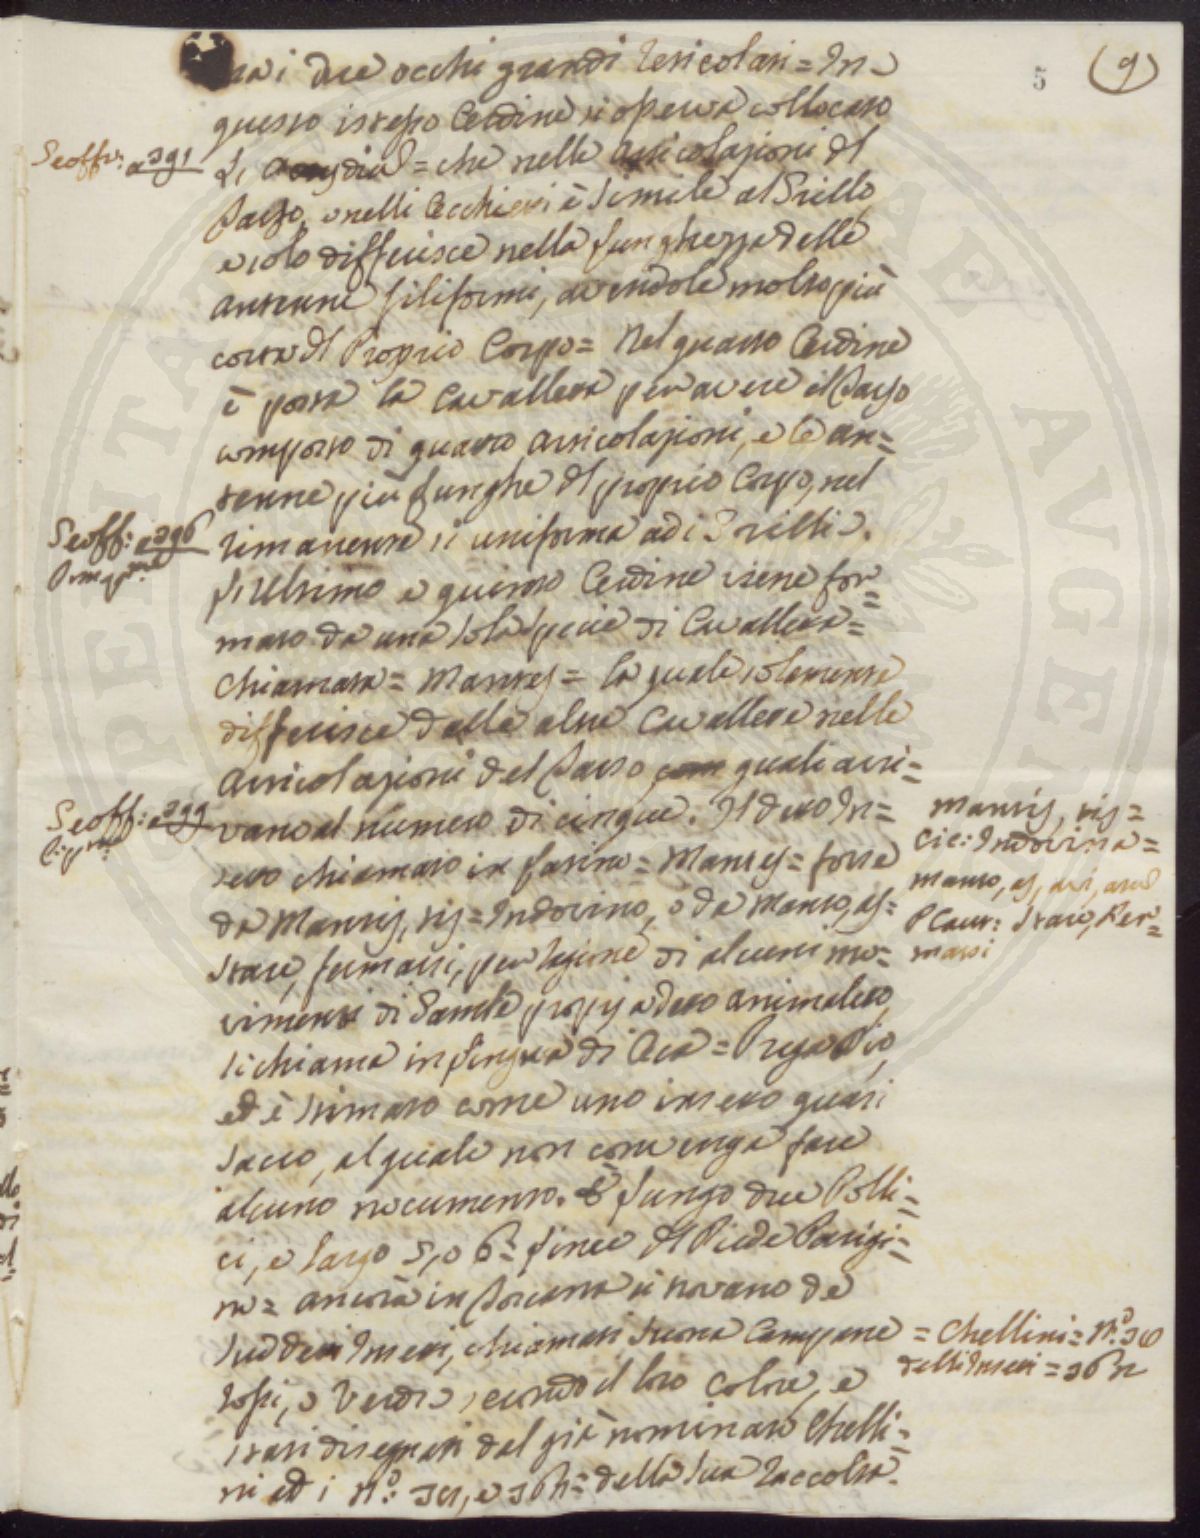 5
(9)
tra i due occhi grandi reticolari = In
questo istesso Ordine si osserva collocato
Seoffr: a 391
L' Acrydium = che nelle articolazioni del
Tarso, e nelli Occhietti è simile al Grillo,
e solo differisce nella lunghezza delle
antenne filiformi, avendole molto più
corte del Proprio Corpo = Nel quarto Ordine
è posta la Cavalletta per avere il Tarso
composto di quattro articolazioni, e le an=
tenne più lunghe del proprio Corpo, nel
Seoff: a 396
rimanente si uniforma ad i Grilli.
L'Ultimo e quinto Ordine viene for=
mato da una sola specie di Cavalletta =
chiamata = Mantes = la quale solamente
differisce dalle altre Cavallette nelle
articolazioni del Tarso quali arri=
Seoff: a 399
vano al numero di cinque. Il detto In=
setto chiamato in latino = Mantes = forse
da Mantis, tis = Indovino, o da Manto, as =
stare, fermarsi, per ragione di alcuni mo=
vimenti di Gambe proprj a detto animaletto,
si chiama in lingua di Oca = Prega Dio,
ed è stimato come uno insetto quasi
sacro, al quale non convenga fare
alcuno nocumento. È lungo due Polli=
ci, e largo 5, o 6 = linee del Piede Parigi=
no = ancora in Toscana si trovano de
suddetti Insetti, chiamati suona Campane
rossi, o Verdi secondo il loro colore, e
stati disegnati dal già nominato Chelli=
ni ad i N.° 31, e 36 = della sua raccolta.
Mantis, tis =
cic: Indovina =
manto, as, avi, atum
Plaut: stare, Fer=
marsi
= Chellini = N.°
delli Insetti =